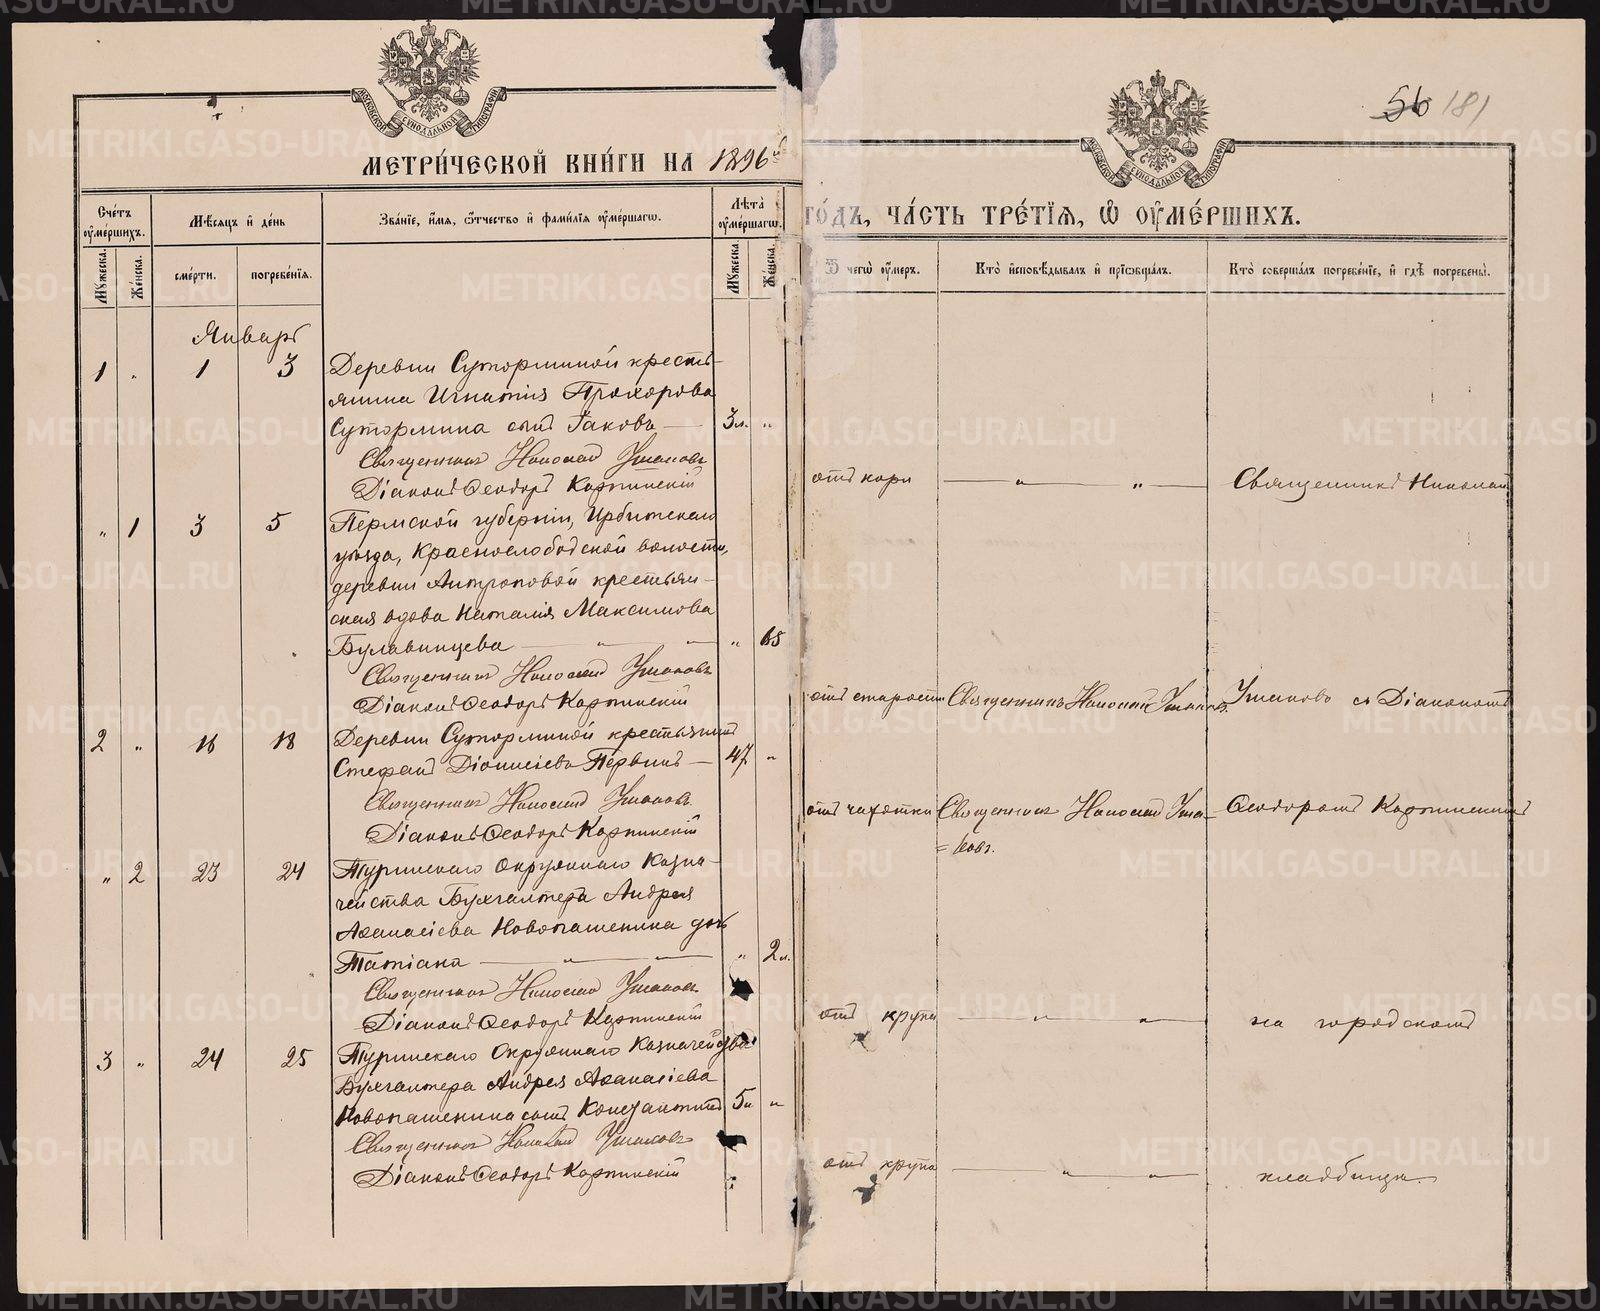 56 181
МЕТРИЧЕСКОЙ КНИГИ НА 1896й
ГОДЪ, ЧАСТЬ ТРЕТІЯ, Ѡ ОУМЕРШИХЪ.
Счетъ оумершихъ.
Мѣсяцъ и день
Званіе, имя, ѿчество и фамилія оумершагѡ.
Лѣта оумершагѡ.
Мужеска.
Женска.
смерти.
погребенія.
Мужеска.
Женска.
Ѿ чегѡ оумеръ.
Кто исповѣдывалъ и пріобщалъ.
Кто совершалъ погребеніе, и гдѣ погребены.
Январь
1 " 1 3 Деревни Сутορминой кресть-
янина Игнатія Прохорова
Сутормина сынъ Іаковъ — 3 л. "
Священникъ Николай Ушаковъ
Діаконъ Ѳеодоръ Карпинскій
отъ кори — " " — Священникъ Николай
" 1 3 5 Пермской губерніи, Ирбитскаго
уѣзда, Краснослободской волости,
деревни Антроповой крестьян-
ская вдова Наталія Максимова
Булавинцева — " — " — " 65
Священникъ Николай Ушаковъ
Діаконъ Ѳеодоръ Карпинскій
отъ старости Священникъ Николай Ушаковъ. Ушаковъ съ Діакономъ
2 " 16 18 Деревни Суторминой крестьянинъ
Стефанъ Діонисіевъ Первинъ — 47 "
Священникъ Николай Ушаковъ
Діаконъ Ѳеодоръ Карпинскій
отъ чахотки Священникъ Николай Уша-
=ковъ.
Ѳеодоромъ Карпинскимъ
" 2 23 24 Туринскаго Окружнаго Казна-
чейства Бухгалтера Андрея
Аѳанасіева Новопашенина дочь
Татіана — " — " — " 2 л.
Священникъ Николай Ушаковъ
Діаконъ Ѳеодоръ Карпинскій
отъ крупа — " — " — на городскомъ
3 " 24 25 Туринскаго Окружнаго Казначейства
Бухгалтера Андрея Аѳанасіева
Новопашенина сынъ Константинъ 5 л "
Священникъ Николай Ушаковъ
Діаконъ Ѳеодоръ Карпинскій
отъ крупа — " — " — кладбищѣ.
METRIKI.GASO-URAL.RU